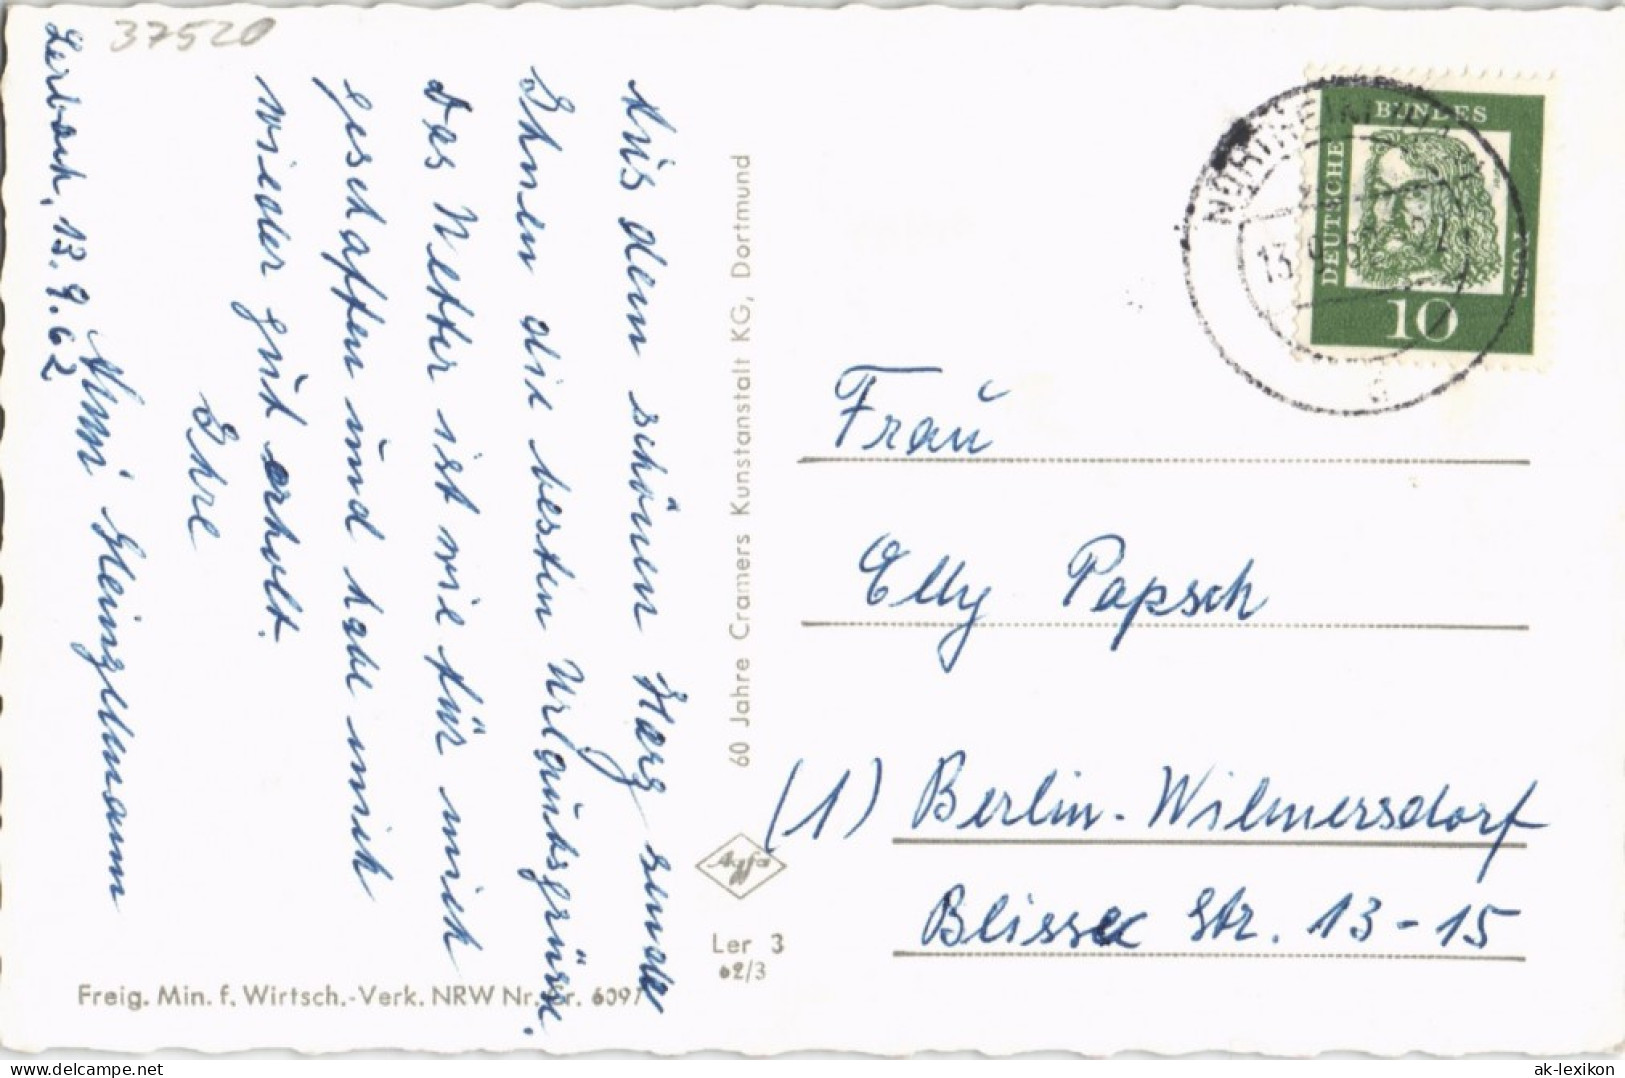 37520
Lerbach, 13.9.62
Aus dem schönen Harz sende
Ihnen die besten Urlaubsgrüsse.
Das Wetter ist wie für mich
geschaffen und habe mich
wieder gut erholt.
Ihre
Anni Steinzelmann
60 Jahre Cramers Kunstanstalt KG, Dortmund
Agfa
Ler 3
62/3
Freig. Min. f. Wirtsch.-Verk. NRW Nr.
DEUTSCHE BUNDES POST
10
13.9.62
Frau
Elly Papsch
(1) Berlin-Wilmersdorf
Blisse Str. 13-15
www.delcampe.net
ak-lexikon